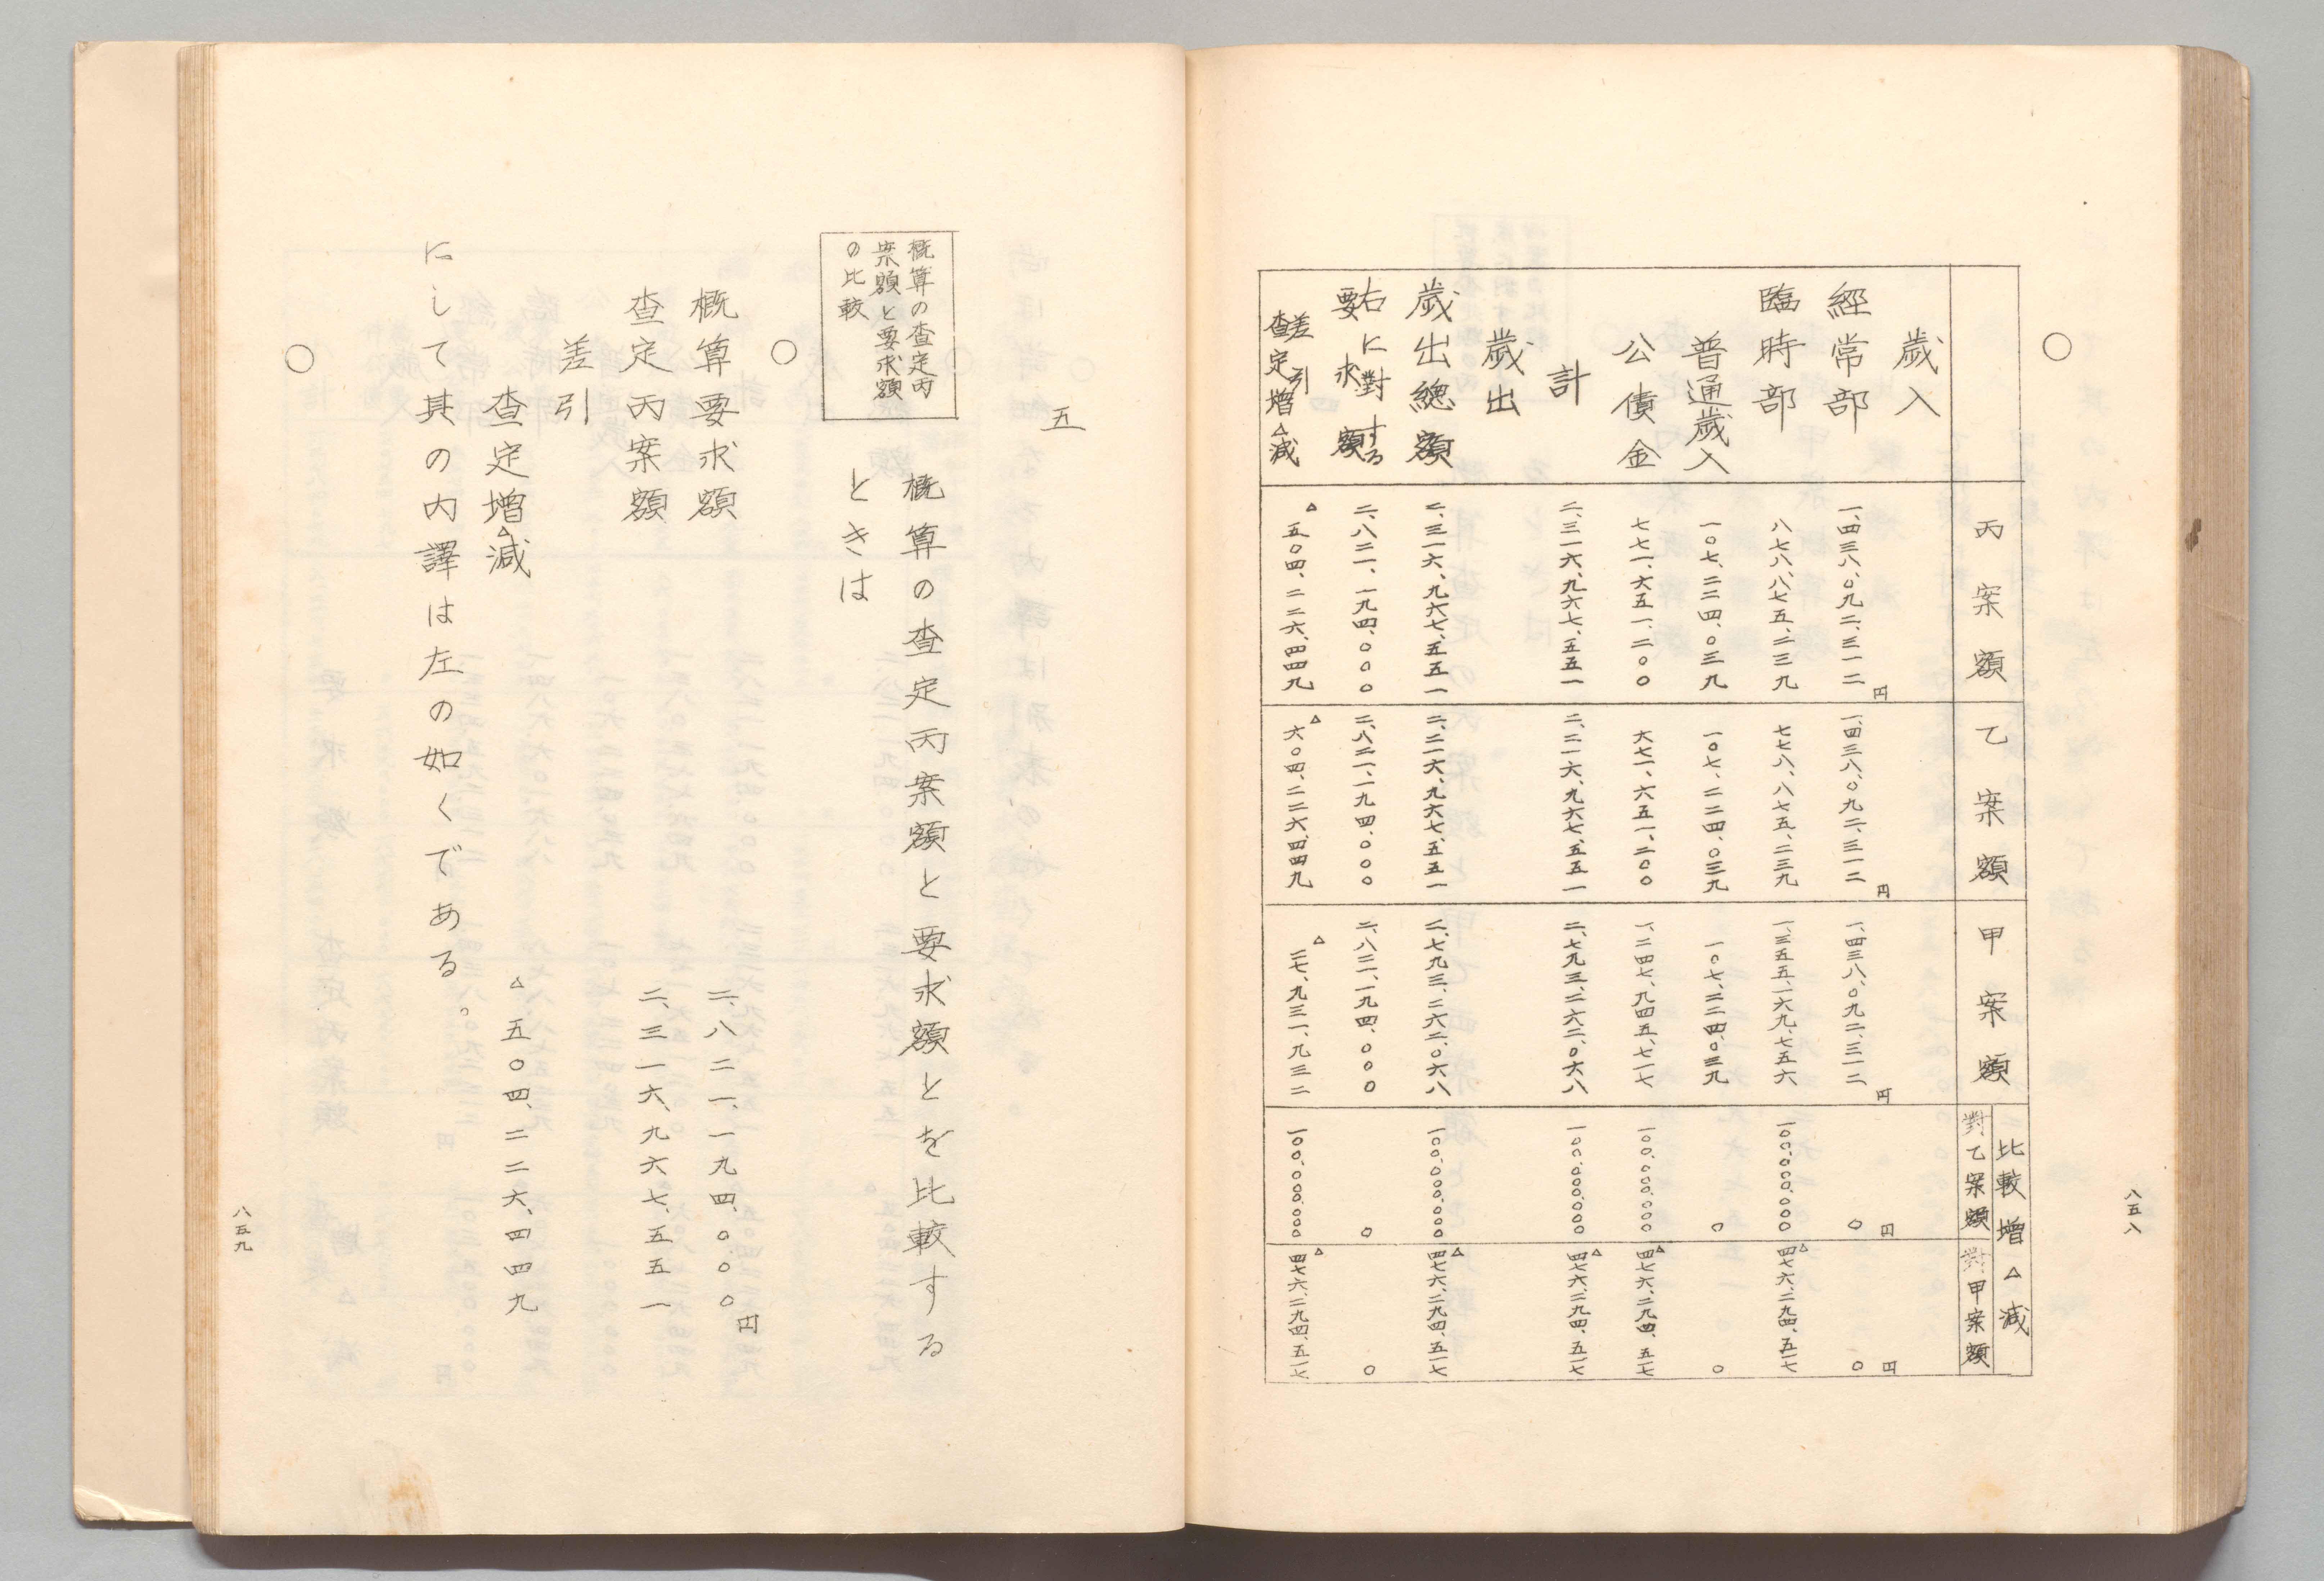 八五八
○
比較增△減
丙案額 乙案額 甲案額 對乙案額 對甲案額
歲入
經常部 一、四三八、〇九二、三一二円 一、四三八、〇九二、三一二円 一、四三八、〇九二、三一二円 〇円 〇円
臨時部 八七八、八七五、二三九 七七八、八七五、二三九 一、三五五、一六九、七五六 一〇〇、〇〇〇、〇〇〇 △四七六、二九四、五一七
普通歲入 一〇七、二二四、〇三九 一〇七、二二四、〇三九 一〇七、二二四、〇三九 〇 〇
公債金 七七一、六五一、二〇〇 六七一、六五一、二〇〇 一、二四七、九四五、七一七 一〇〇、〇〇〇、〇〇〇 △四七六、二九四、五一七
計 二、三一六、九六七、五五一 二、二一六、九六七、五五一 二、七九三、二六二、〇六八 一〇〇、〇〇〇、〇〇〇 △四七六、二九四、五一七
歲出
歲出總額 二、三一六、九六七、五五一 二、二一六、九六七、五五一 二、七九三、二六二、〇六八 一〇〇、〇〇〇、〇〇〇 △四七六、二九四、五一七
右に對する
要求額 二、八二一、一九四、〇〇〇 二、八二一、一九四、〇〇〇 二、八二一、一九四、〇〇〇 〇 〇
差引
查定增△減 △五〇四、二二六、四四九 △六〇四、二二六、四四九 △二七、九三一、九三二 一〇〇、〇〇〇、〇〇〇 △四七六、二九四、五一七
五
概算の查定丙
案額と要求額
の比較
概算の查定丙案額と要求額とを比較する
ときは
○
概算要求額 二、八二一、一九四、〇〇〇円
查定丙案額 二、三一六、九六七、五五一
差引
查定增△減 △五〇四、二二六、四四九
にして其の内譯は左の如くである。
○
八五九